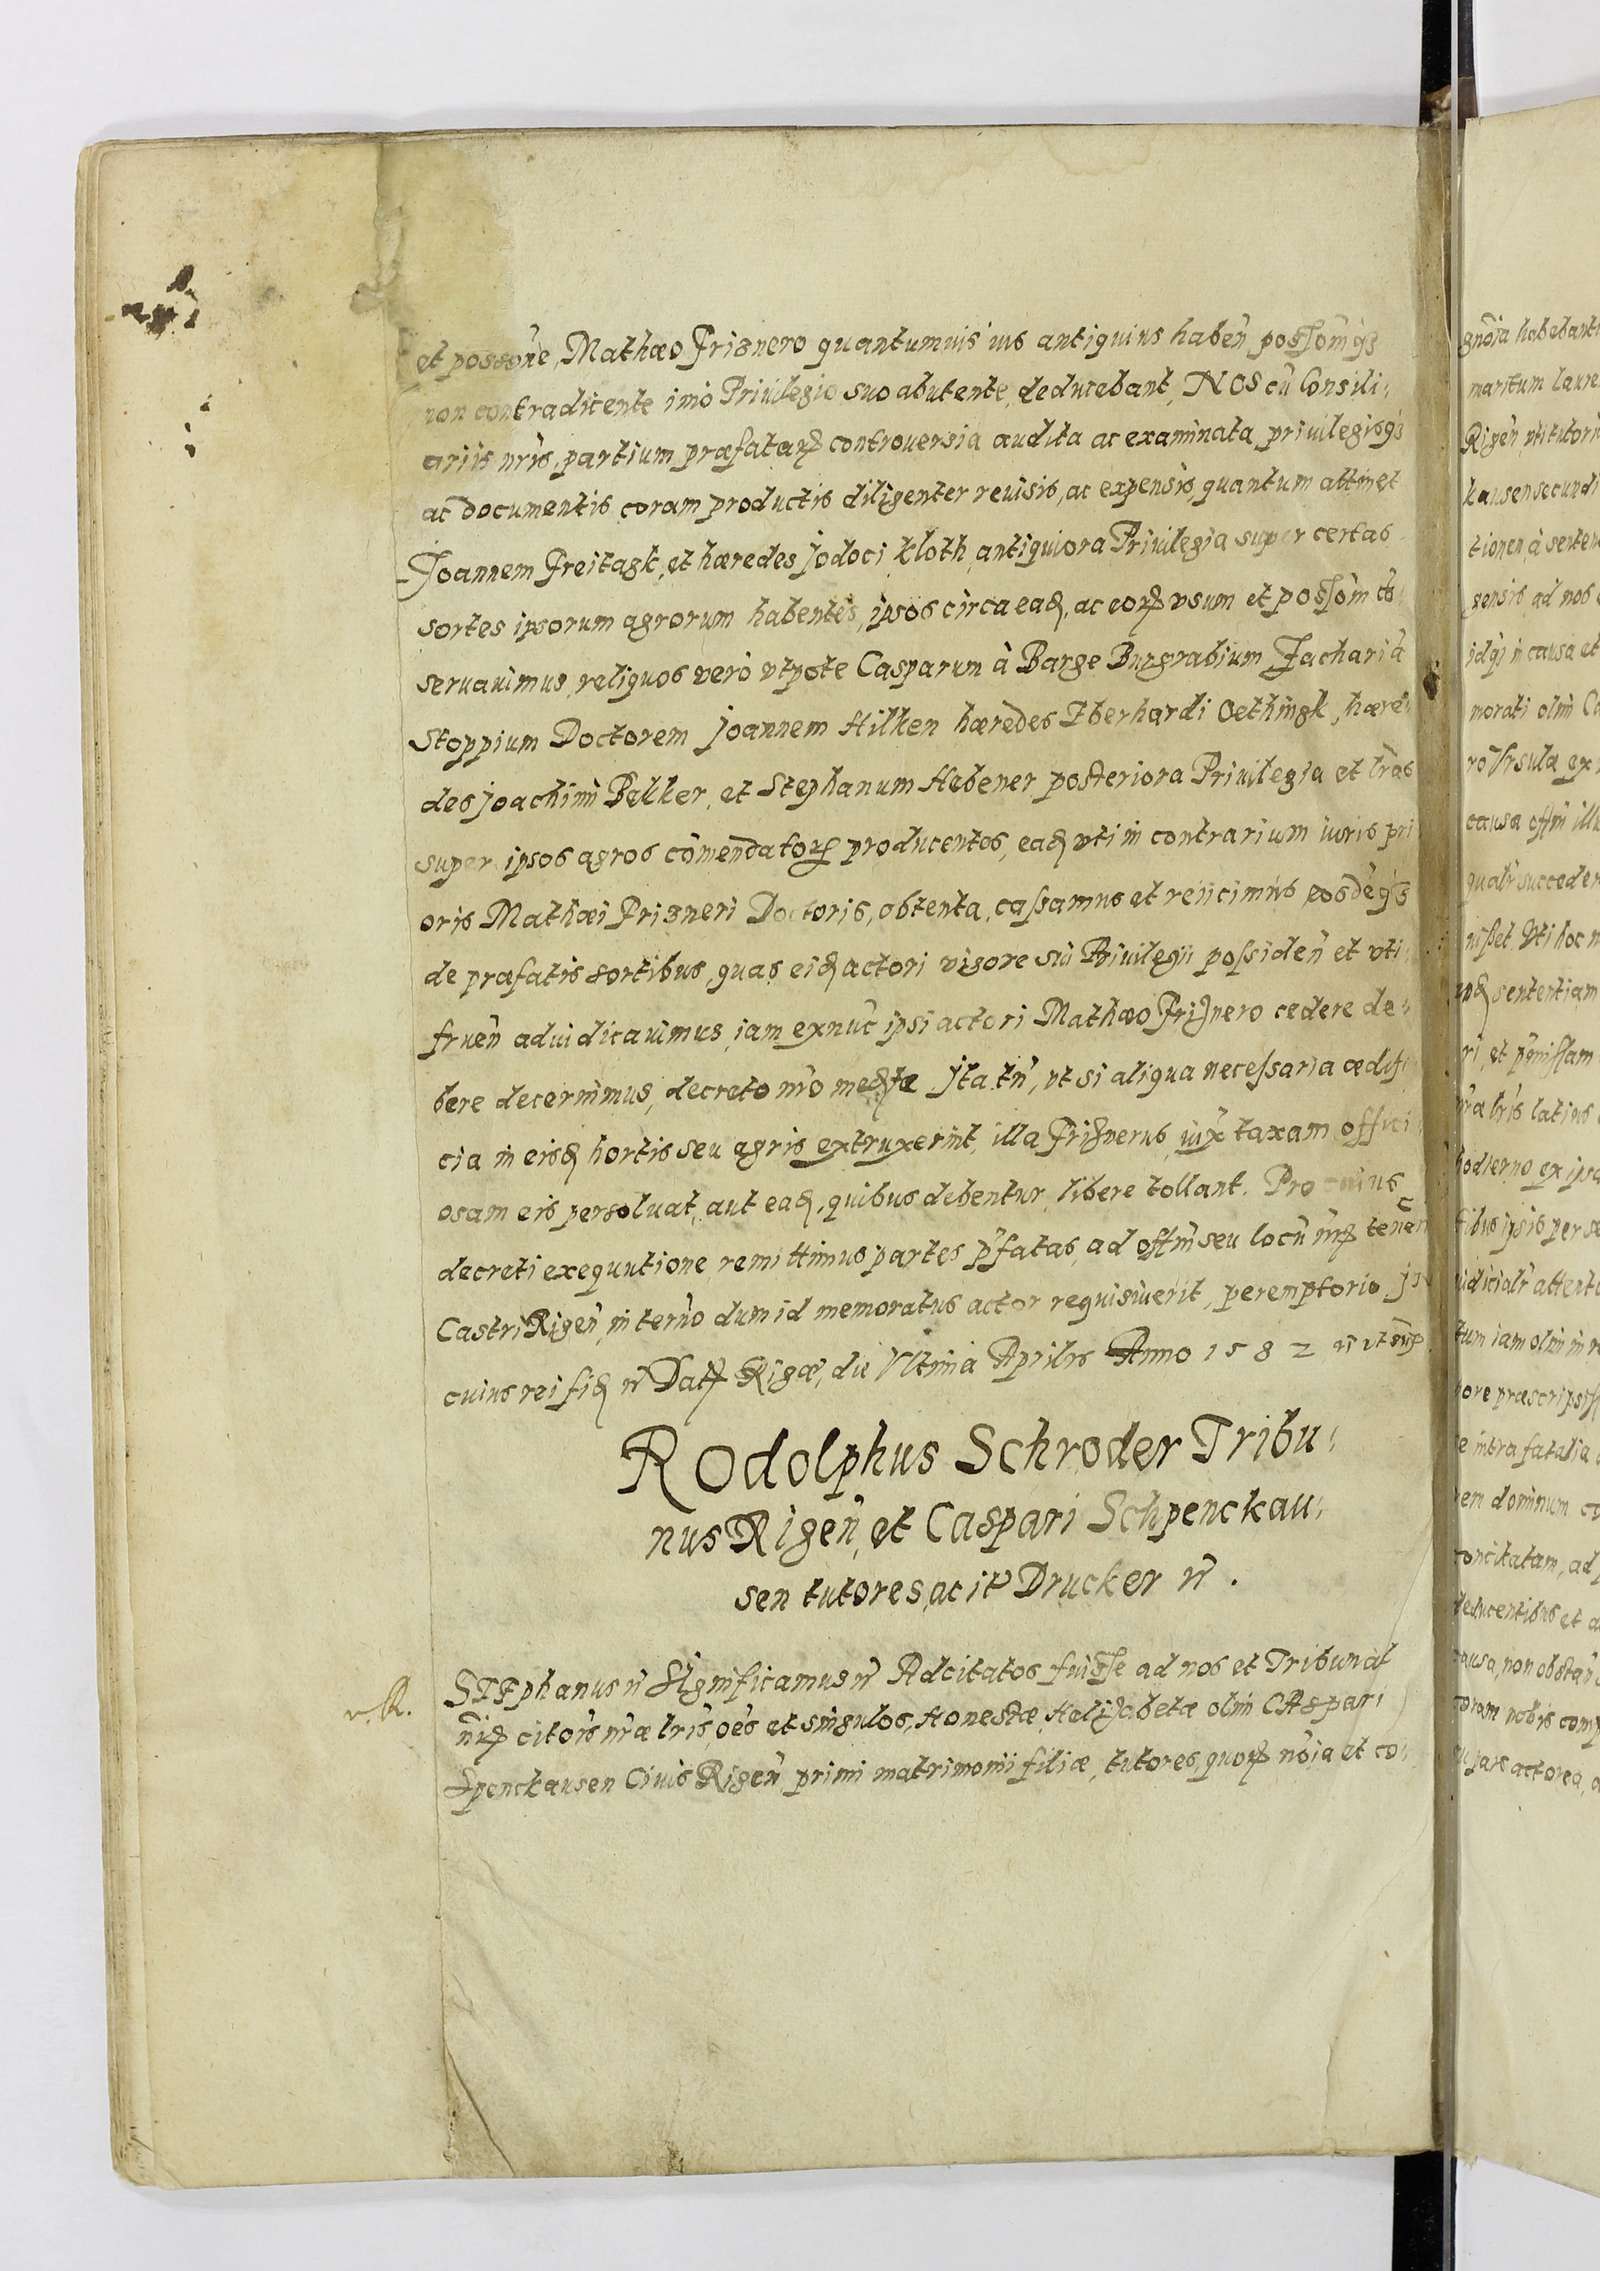 et possone, Mathæo Frisnero quantumuis ius antiquius haben̄ possōmq3
non contradicente imò Priuilegio suo abutente, deducebant, NOS cū Consili:
ariis nr̄is, partium præfataꝝ controuersia audita ac examinata, priuilegiisq3
ac documentis coram productis diligenter reuisis, ac expensis, quantum attinet
Joannem Freitagk, et hæredes Jodoci Kloth, antiquiora Priuilegia super certas
sortes ipsorum agrorum habentes, ipsos circa eaꝺ, ac eoꝝ vsum et possōm cō:
seruauimus, reliquos verò vtpote Casparum à Barge Burgrabium, Zachariā
Stoppium Doctorem Joannem Hilken hæredes Eberhardi Oethingk, hære:
des Joachimi Bekker, et Stephanum Hebener posteriora Priuilegia et lr̄as
super ipsos agros cōmendatoꝝ producentes, eaꝺ vti in contrarium iuris pri
oris Mathæi Frisneri Doctoris, obtenta, cassamus et reiicimus, eosdēq3
de præfatis sortibus, quas eiꝺ actori vigore sui Priuilegii possiden̄ et vti:
fruen̄ adiudicauimus, iam exnūc ipsi actori Mathæo Frisnero cedere de:
bere decernimus, decreto nr̄o mediate Jta tn̄, vt si aliqua necessaria ædifi
cia in eisꝺ hortis seu agris extruxerint, illa Frisnerus, iux̄ taxam offici
osam eis persoluat, aut eaꝺ, quibus debentur, libere tollant. Pro cuius
decreti exequutione remittimus partes p̄fatas, ad offm̄ seu locū nr̄ꝝ tenen̄
Castri Rigen̄, in terno dum id memoratus actor requisiuerit, peremptorio, Jn
cuius rei fiꝺ &c Datꝝ Rigæ, die Vltima Aprilis Anno 1582 &c vt sup
Rodolphus Schroder Tribu:
nus Rigen̄, et Caspari Schpenckau:
sen tutores, ac it Drucker &c.
v. R.
STEphanus &c Significamus &c Adcitatos fuisse ad nos et Tribunal
nr̄ꝝ citor̄is nr̄æ lr̄is, oēs et singulos, Honestæ Helisabetæ olim CAspari
Spenckausen Ciuis Rigen̄ primi matrimonii filiæ, tutores, quoꝝ nōia et co:
gnōia habebant
maritum laure
Rigen̄ vti tutori
kausen secundi
tionen, à senten
gensis, ad nos
idq3 in causa et
morati olim Ca
rò Vrsula ex
causa offm̄ ill
qualr̄ succeden
nisset. Vti hoc
sententiam
latius
hodierno ex ips
tibus ipsis per se
udicialr̄ attent
tum iam olim in
hore præscripsiss
intra fatalia
em dominum co
concitatam, ad
deducentibus et a
causa, non obstan̄
coram nobis com
pars actorea, a